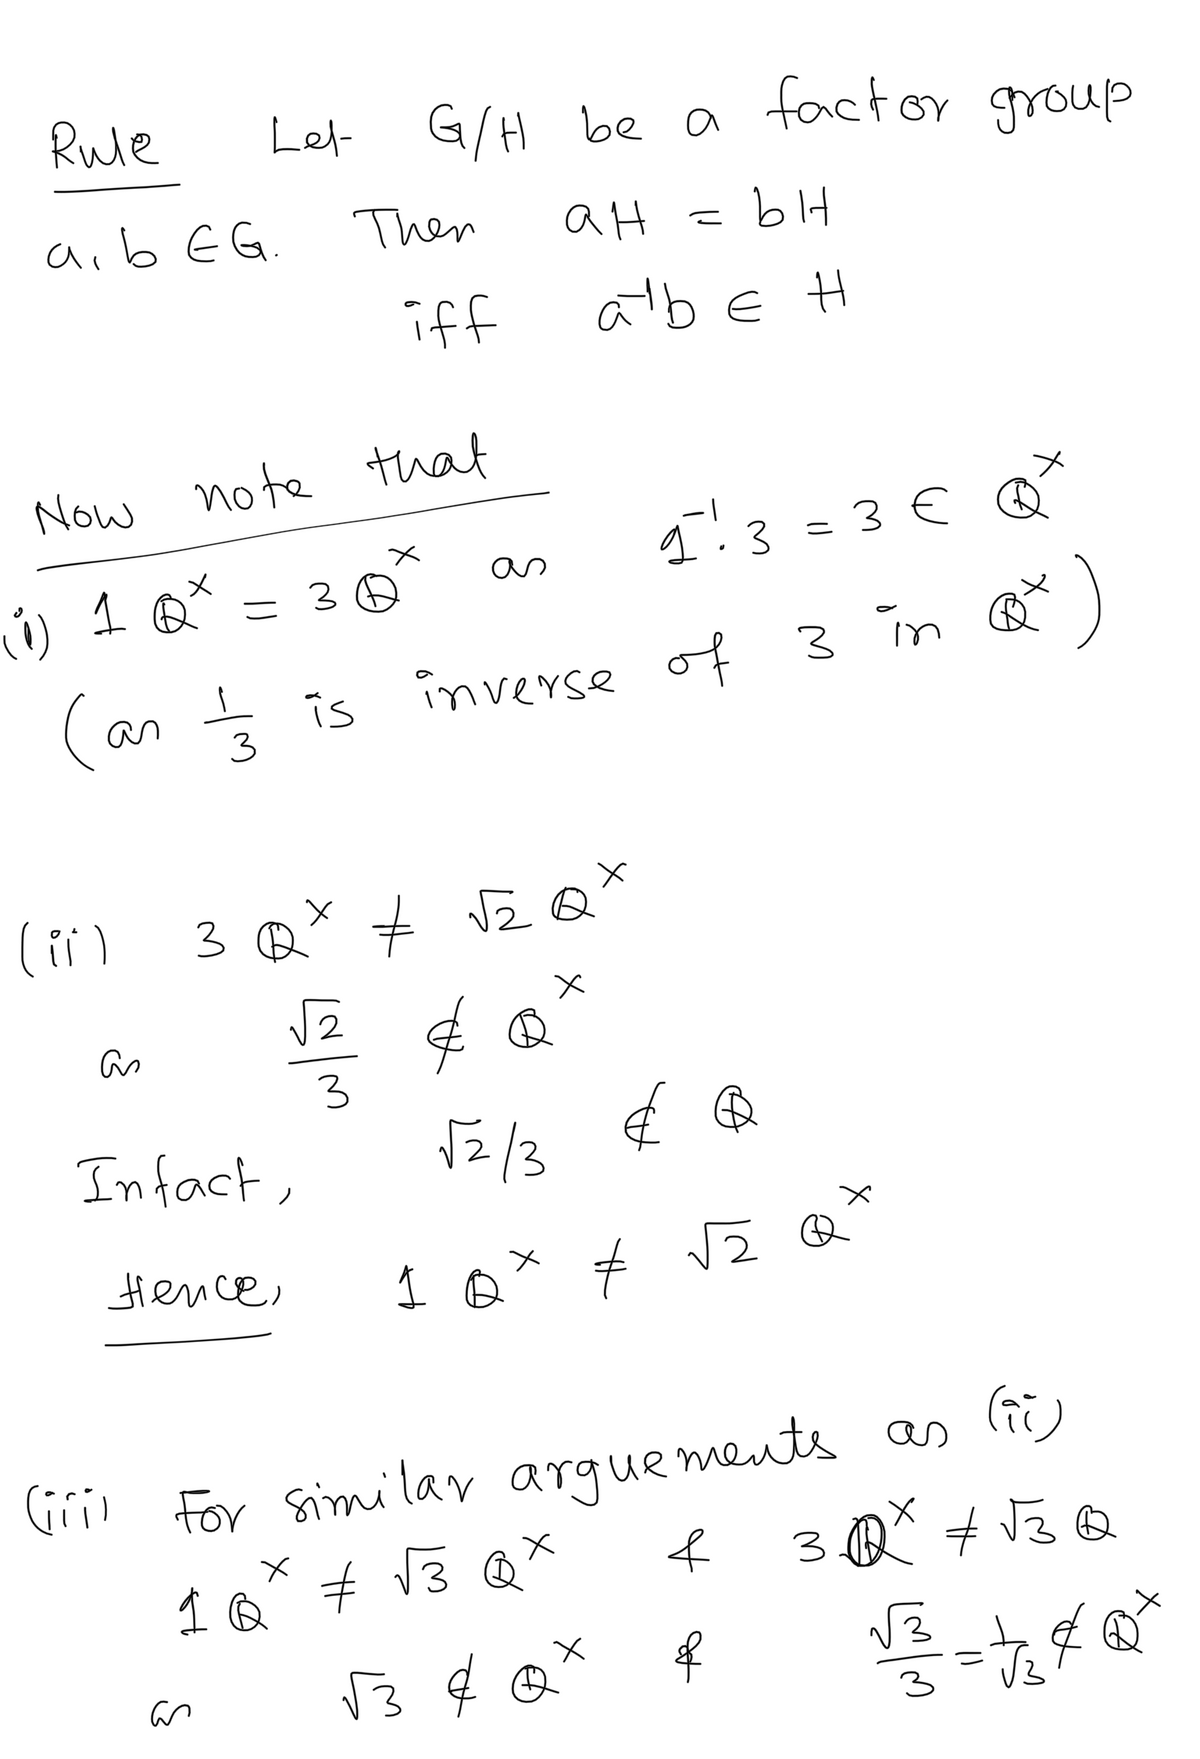 Rule Let G/H be a factor group
a, b ∈ G. Then aH = bH
iff a⁻¹b ∈ H
Now note that
(i) 1 ℚˣ = 3 ℚˣ as 1⁻¹.3 = 3 ∈ ℚˣ
(as 1/3 is inverse of 3 in ℚˣ)
(ii) 3 ℚˣ ≠ √2 ℚˣ
as √2/3 ∉ ℚˣ
Infact, √2/3 ∉ ℚ
Hence, 1 ℚˣ ≠ √2 ℚˣ
(iii) For similar arguements as (ii)
1 ℚˣ ≠ √3 ℚˣ & 3 ℚˣ ≠ √3 ℚ
as √3 ∉ ℚˣ & √3/3 = 1/√3 ∉ ℚˣ